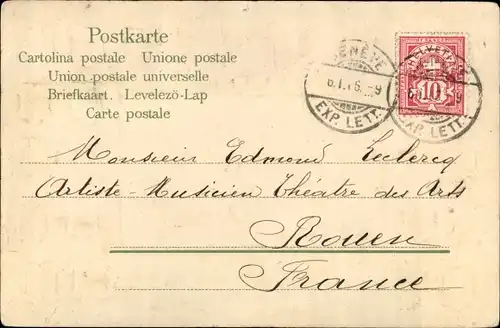 Postkarte
Cartolina postale Unione postale
Union postale universelle
Briefkaart. Levelezö-Lap
Carte postale
GENÈVE
EXP. LETT.
HELVETIA
10
EXP. LETT.
Monsieur Edmond Leclercq
Artiste-Musicien Théatre des Arts
Rouen
France